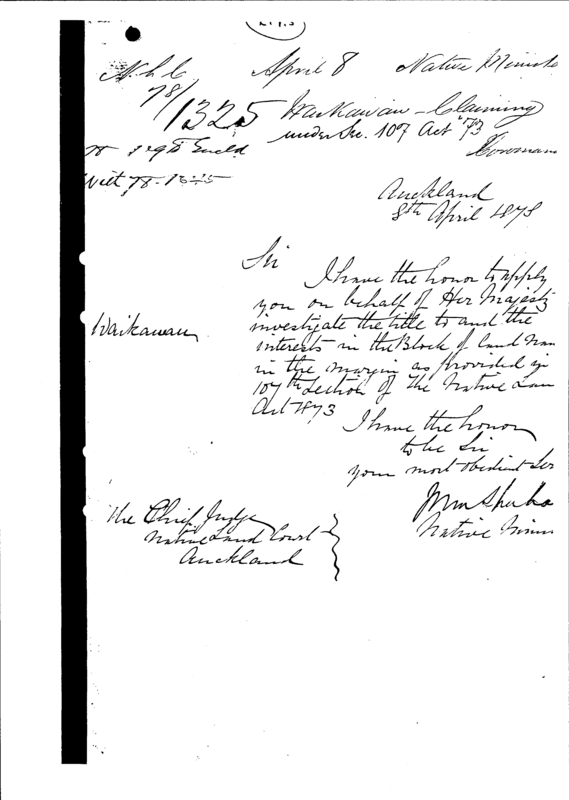 N.L.C. April 8 Native Minist
78/1325 Waikawau - Claiming
under Sec. 107 Act "73
78
Auckland
8th April 1878
Sir
I have the honor to apply
you on behalf of Her Majesty
Waikawau
investigate the title to and the
interests in the Block of land nam
in the margin as provided in
107th Section of the Native Lan
Act 1873
I have the honor
to be Sir
your most obedient Ser
Native Minis
The Chief Judge
Native Land Court
Auckland